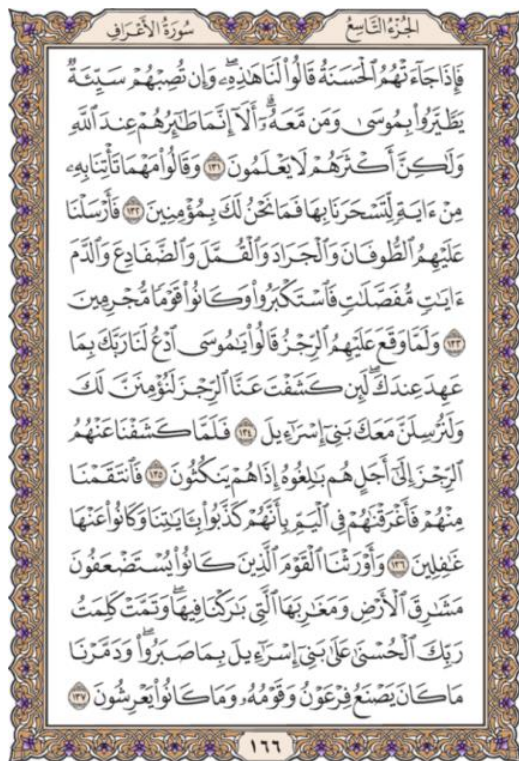 الجُزْءُ التَّاسِعُ
سُورَةُ الأَعْرَافِ
فَإِذَا جَآءَتْهُمُ ٱلْحَسَنَةُ قَالُوا۟ لَنَا هَٰذِهِۦ وَإِن تُصِبْهُمْ سَيِّئَةٌ
يَطَّيَّرُوا۟ بِمُوسَىٰ وَمَن مَّعَهُۥٓ ۗ أَلَآ إِنَّمَا طَٰٓئِرُهُمْ عِندَ ٱللَّهِ
وَلَٰكِنَّ أَكْثَرَهُمْ لَا يَعْلَمُونَ ١٣١ وَقَالُوا۟ مَهْمَا تَأْتِنَا بِهِۦ
مِنْ ءَايَةٍ لِّتَسْحَرَنَا بِهَا فَمَا نَحْنُ لَكَ بِمُؤْمِنِينَ ١٣٢ فَأَرْسَلْنَا
عَلَيْهِمُ ٱلطُّوفَانَ وَٱلْجَرَادَ وَٱلْقُمَّلَ وَٱلضَّفَادِعَ وَٱلدَّمَ
ءَايَٰتٍ مُّفَصَّلَٰتٍ فَٱسْتَكْبَرُوا۟ وَكَانُوا۟ قَوْمًا مُّجْرِمِينَ
١٣٣ وَلَمَّا وَقَعَ عَلَيْهِمُ ٱلرِّجْزُ قَالُوا۟ يَٰمُوسَى ٱدْعُ لَنَا رَبَّكَ بِمَا
عَهِدَ عِندَكَ ۖ لَئِن كَشَفْتَ عَنَّا ٱلرِّجْزَ لَنُؤْمِنَنَّ لَكَ
وَلَنُرْسِلَنَّ مَعَكَ بَنِىٓ إِسْرَٰٓءِيلَ ١٣٤ فَلَمَّا كَشَفْنَا عَنْهُمُ
ٱلرِّجْزَ إِلَىٰٓ أَجَلٍ هُم بَٰلِغُوهُ إِذَا هُمْ يَنكُثُونَ ١٣٥ فَٱنتَقَمْنَا
مِنْهُمْ فَأَغْرَقْنَٰهُمْ فِى ٱلْيَمِّ بِأَنَّهُمْ كَذَّبُوا۟ بِـَٔايَٰتِنَا وَكَانُوا۟ عَنْهَا
غَٰفِلِينَ ١٣٦ وَأَوْرَثْنَا ٱلْقَوْمَ ٱلَّذِينَ كَانُوا۟ يُسْتَضْعَفُونَ
مَشَٰرِقَ ٱلْأَرْضِ وَمَغَٰرِبَهَا ٱلَّتِى بَٰرَكْنَا فِيهَا ۖ وَتَمَّتْ كَلِمَتُ
رَبِّكَ ٱلْحُسْنَىٰ عَلَىٰ بَنِىٓ إِسْرَٰٓءِيلَ بِمَا صَبَرُوا۟ ۖ وَدَمَّرْنَا
مَا كَانَ يَصْنَعُ فِرْعَوْنُ وَقَوْمُهُۥ وَمَا كَانُوا۟ يَعْرِشُونَ ١٣٧
١٦٦